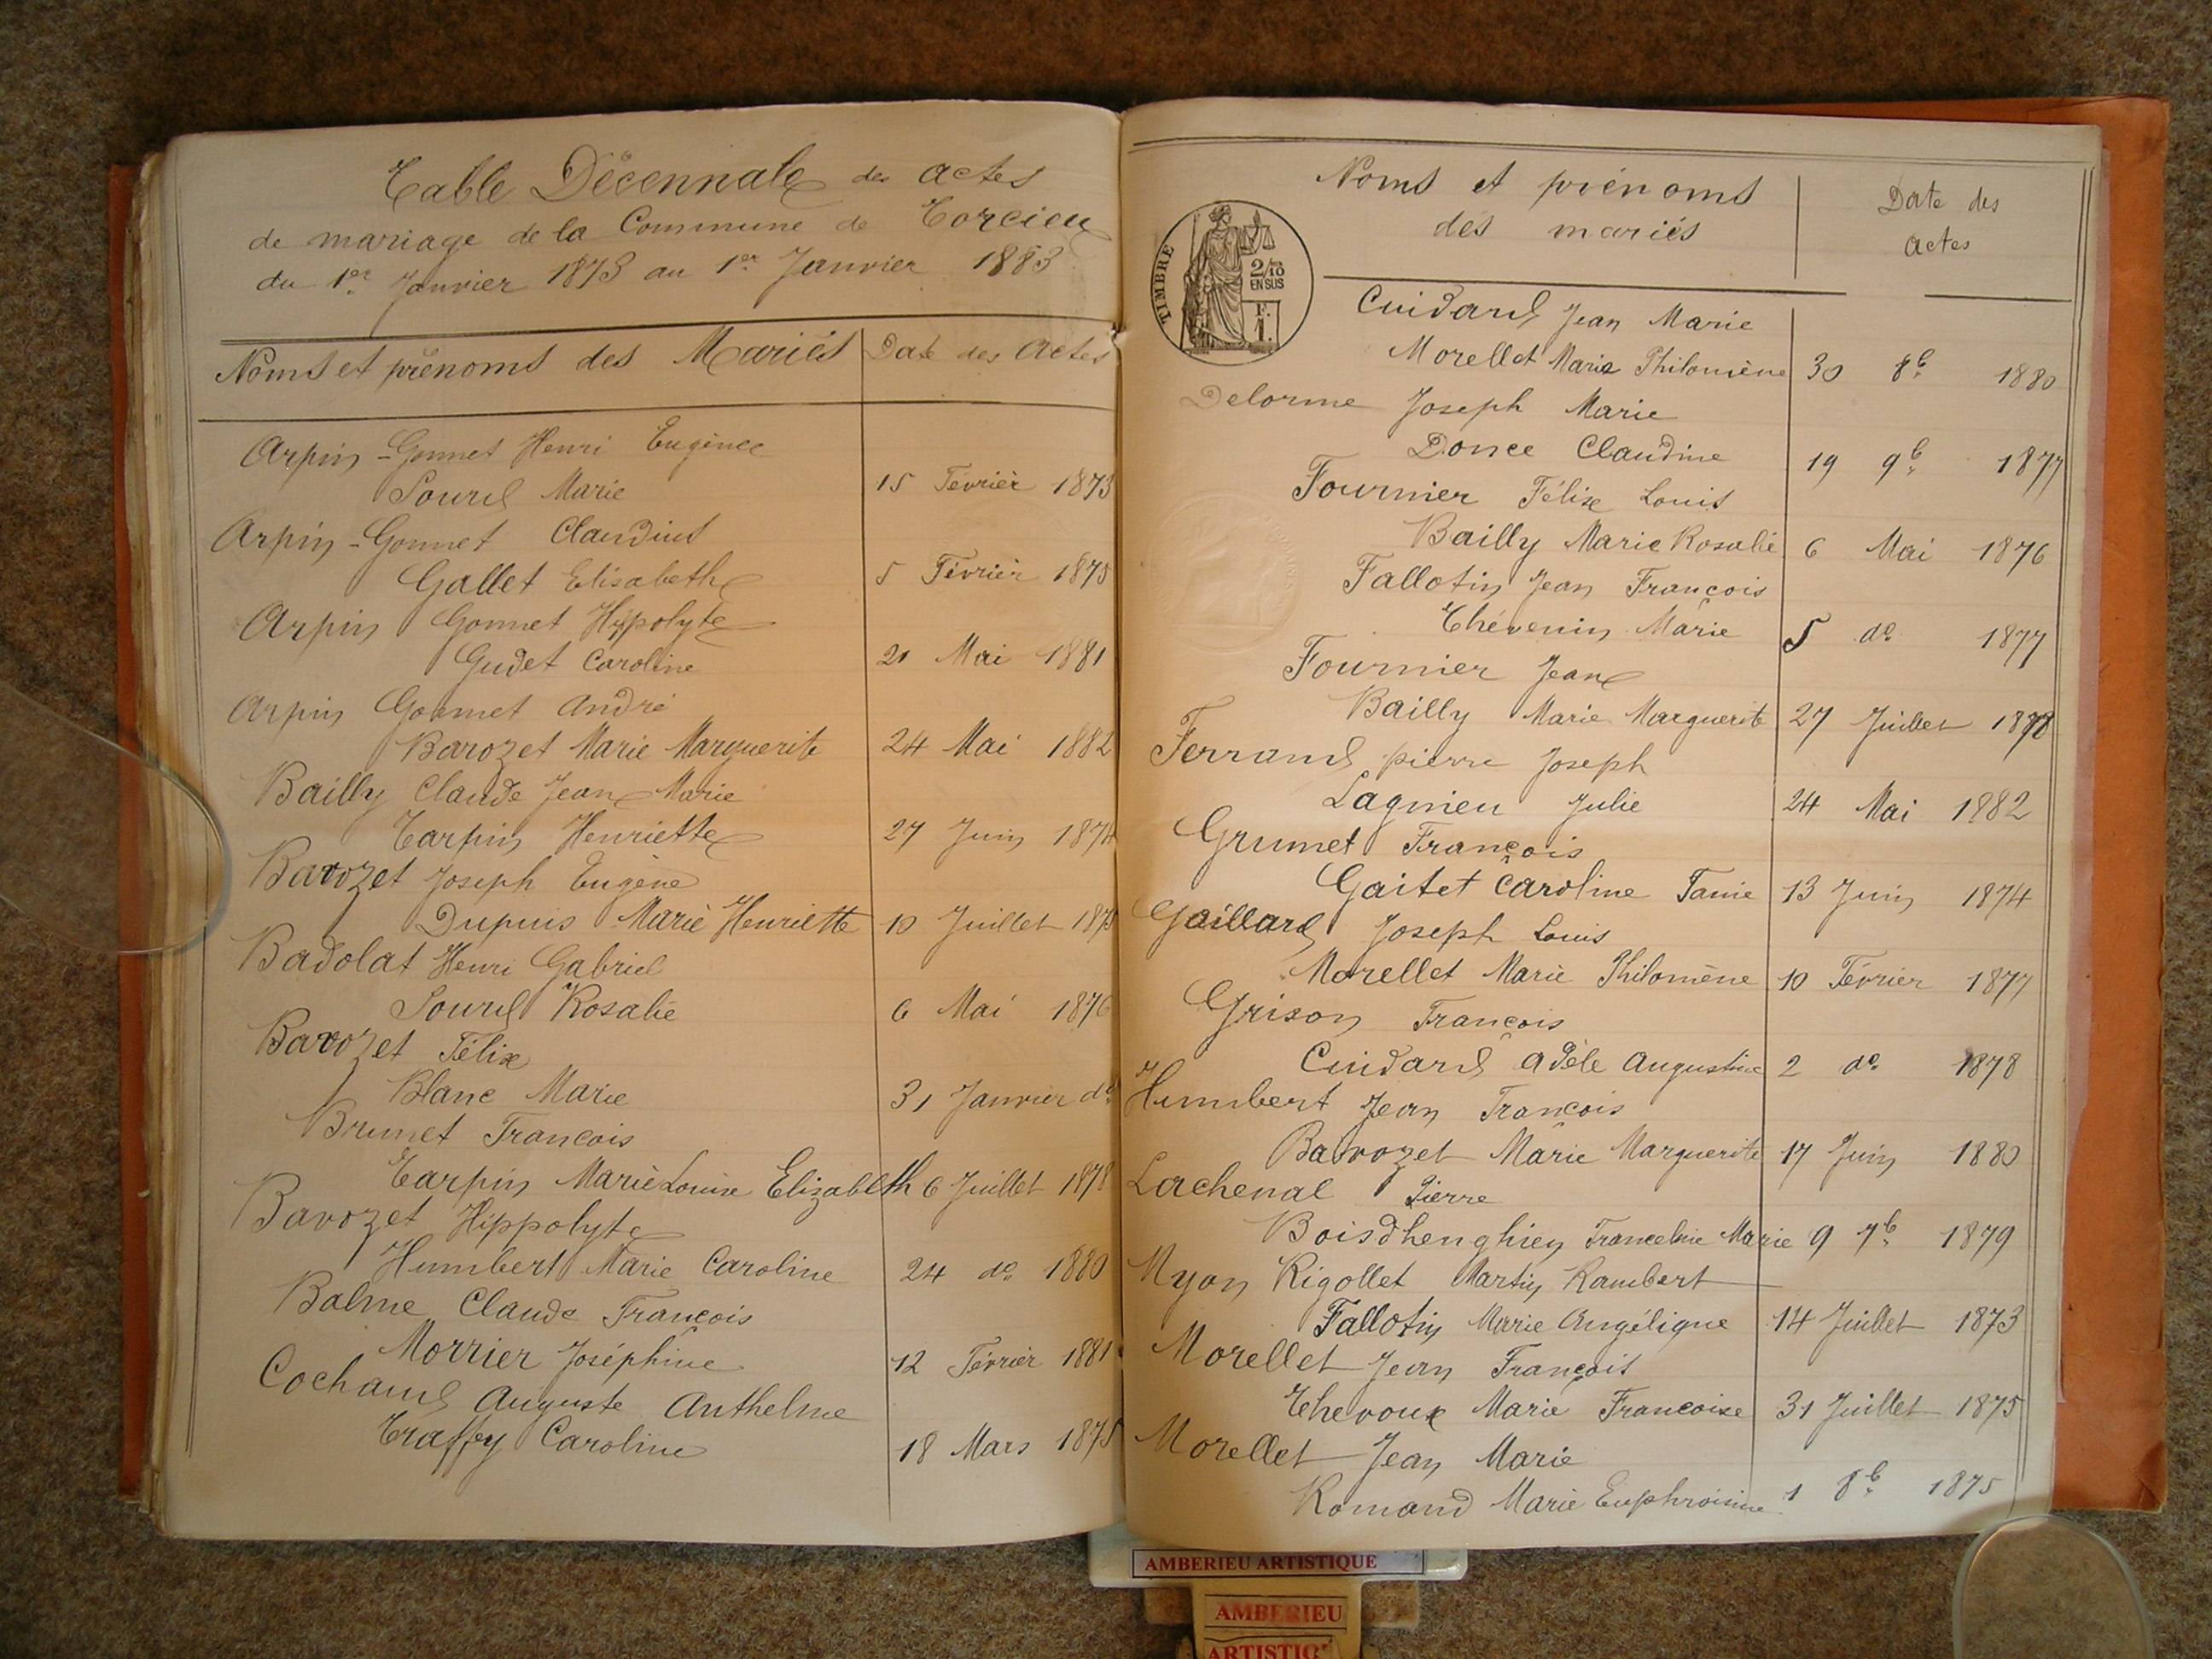 Table Décennale des actes
de mariage de la Commune de Torcieu
du 1er Janvier 1873 au 1er Janvier 1883
Noms et prénoms des Mariés Date des Actes
Arpin-Gonnet Henri Eugène
Sourd Marie 15 Février 1873
Arpin-Gonnet Claudius
Gallet Elisabeth 5 Février 1875
Arpin Gonnet Hippolyte
Gudet Caroline 21 Mai 1881
Arpin Gonnet André
Barozet Marie Marguerite 24 Mai 1882
Bailly Claude Jean Marie
Tarpin Henriette 27 Juin 1874
Bavozet Joseph Eugène
Dupuis Marie Henriette 10 Juillet 1875
Badolat Henri Gabriel
Sourd Rosalie 6 Mai 1876
Bavozet Félix
Blanc Marie 31 Janvier do
Brunet Francois
Tarpin Marie Louise Elizabeth 6 Juillet 1878
Bavozet Hippolyte
Humbert Marie Caroline 24 do 1880
Balme Claude François
Morrier Joséphine 12 Février 1881
Cochand Auguste Anthelme
Traffey Caroline 18 Mars 1875
Noms et prénoms
des mariés
Date des
actes
TIMBRE
2/10
EN SUS
F.
1.
Cuidard Jean Marie
Morellet Marie Philomène 30 8b. 1880
Delorme Joseph Marie
Donce Claudine 19 9b. 1877
Fournier Félix Louis
Bailly Marie Rosalie 6 Mai 1876
Fallotin Jean François
Thévenin Marie 5 do 1877
Fournier Jean
Bailly Marie Marguerite 27 Juillet
Ferrand pierre Joseph
Lagnieu Julie 24 Mai 1882
Grumet François
Gaitet Caroline Fanie 13 Juin 1874
Gaillard Joseph Louis
Morellet Marie Philomène 10 Février 1877
Grison François
Cuidard Adèle Augustine 2 do 1878
Humbert Jean François
Bavozet Marie Marguerite 17 Juin 1880
Lachenal Pierre
Boisdhenghien Franceline Marie 9 7b. 1879
Myon Rigollet Martin Rambert
Fallotin Marie Angélique 14 Juillet 1873
Morellet Jean François
Thevoux Marie Francoise 31 Juillet 1875
Morellet Jean Marie
Romand Marie Euphroisine 1 8b. 1875
AMBERIEU ARTISTIQUE
AMBERIEU
ARTISTIQ